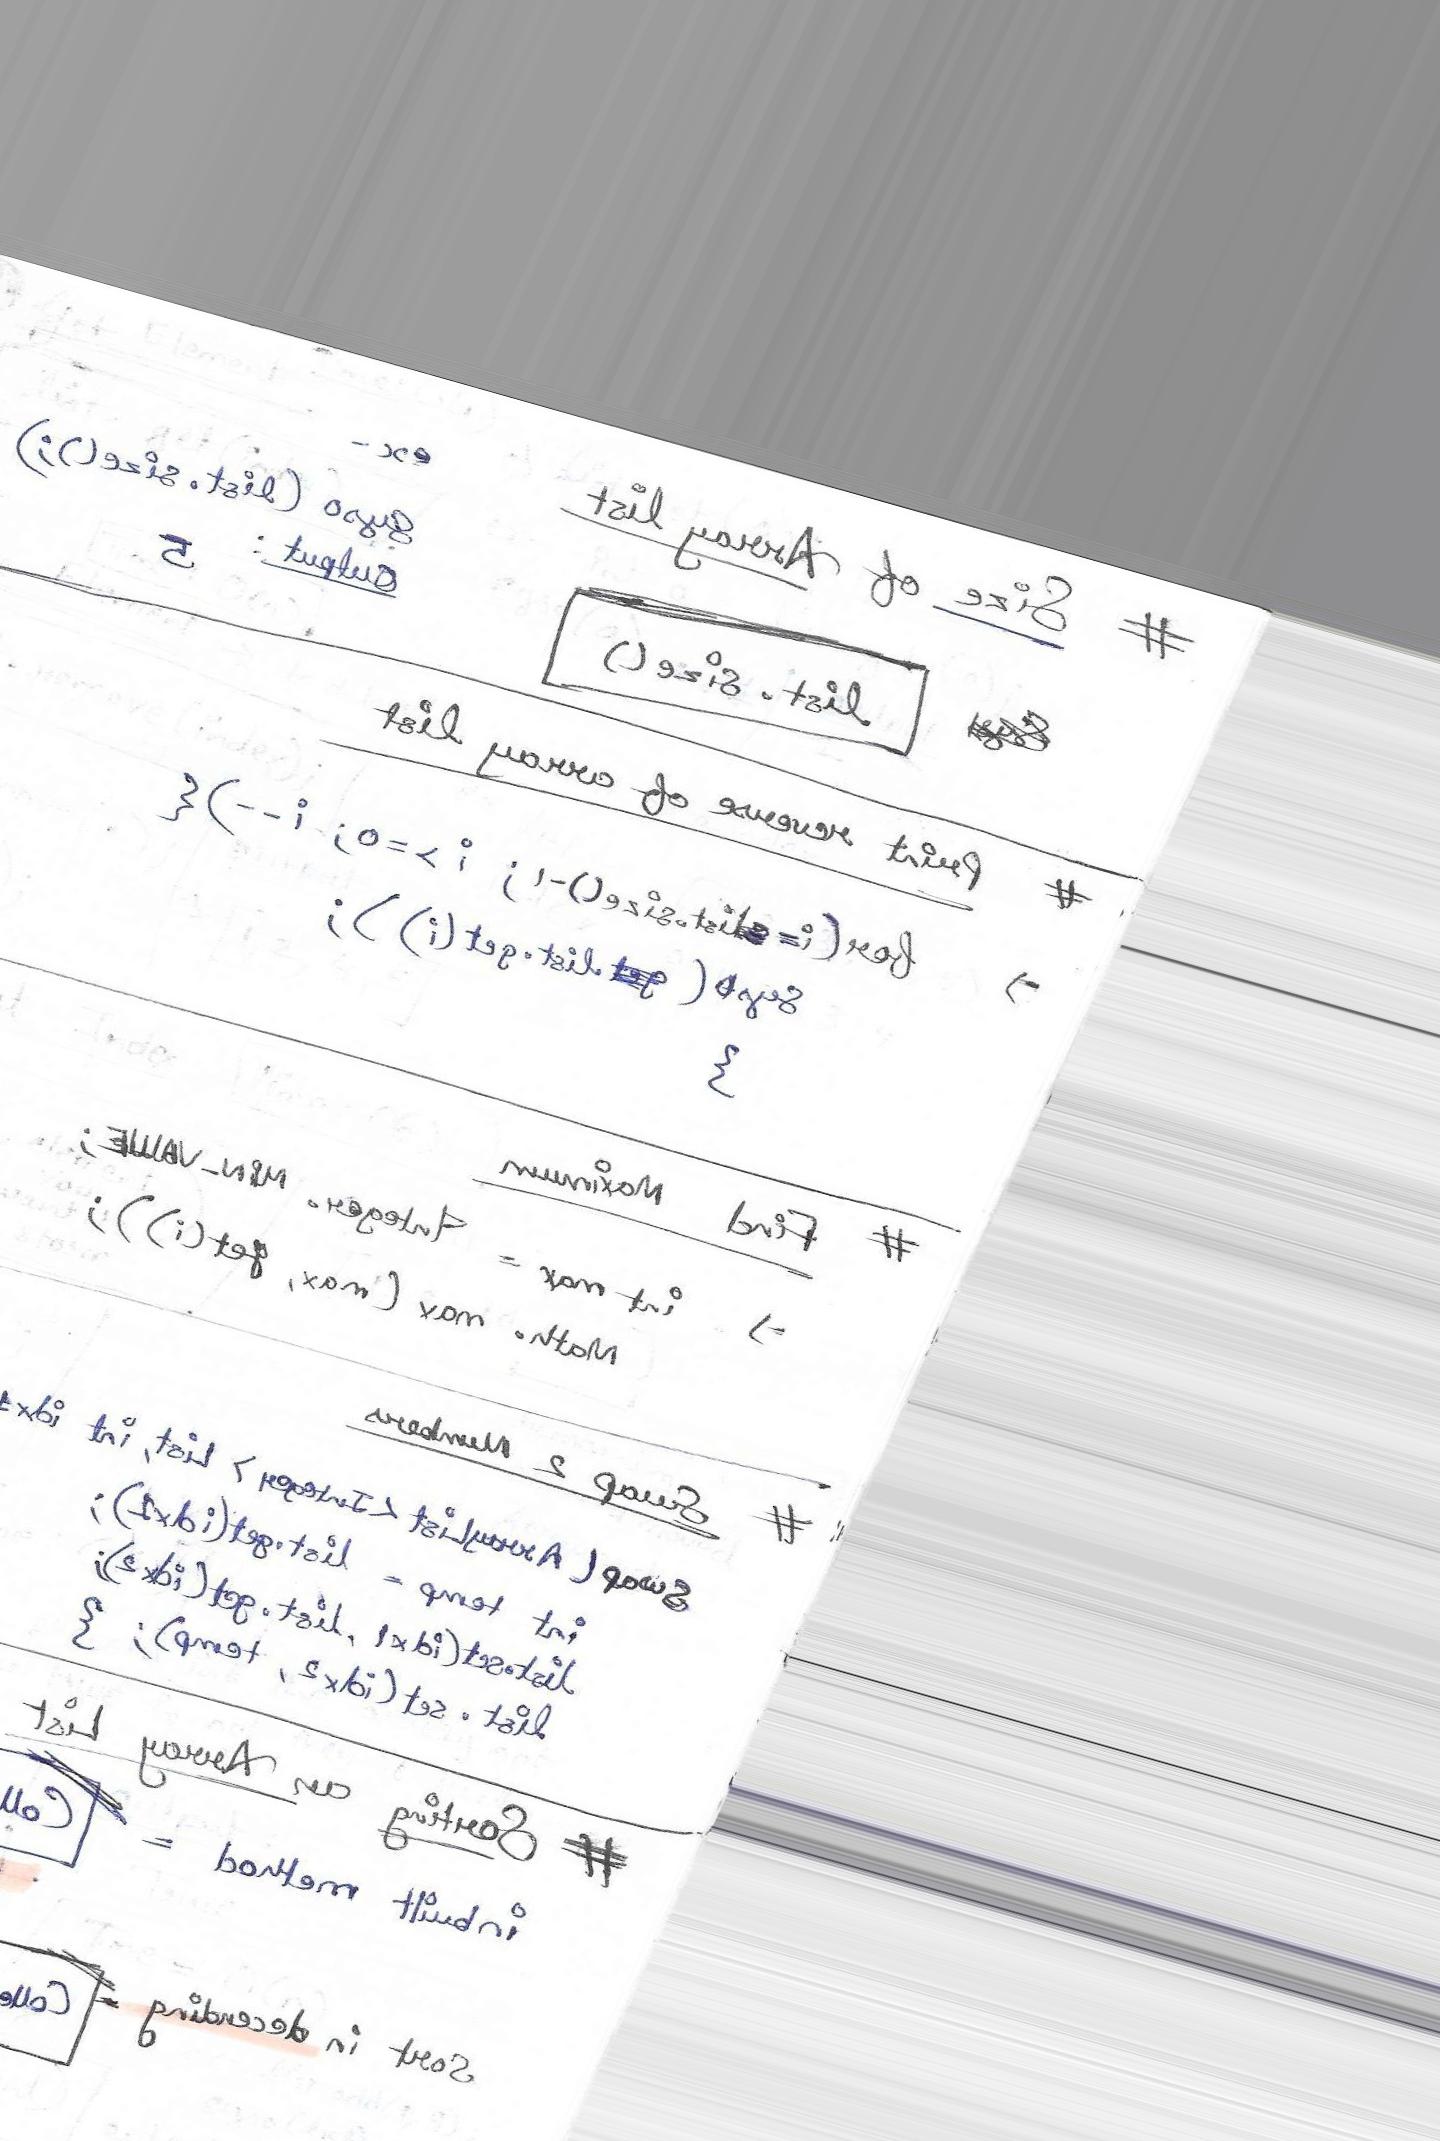 # Size of Array list
list.size()
ex -
syso (list.size());
output: 5
# Print reverse of array list
→ for(i=list.size()-1; i>=0; i--){
syso( list.get(i));
}
# Find Maximum
→ int max = Integer.MIN_VALUE;
Math.max(max, get(i));
# Swap 2 Numbers
Swap(ArrayList <Integer> list, int idx1
int temp = list.get(idx1);
list.set(idx1, list.get(idx2);
list.set(idx2, temp); }
# Sorting an Array List
inbuilt method = Coll
Sort in decending = Colle